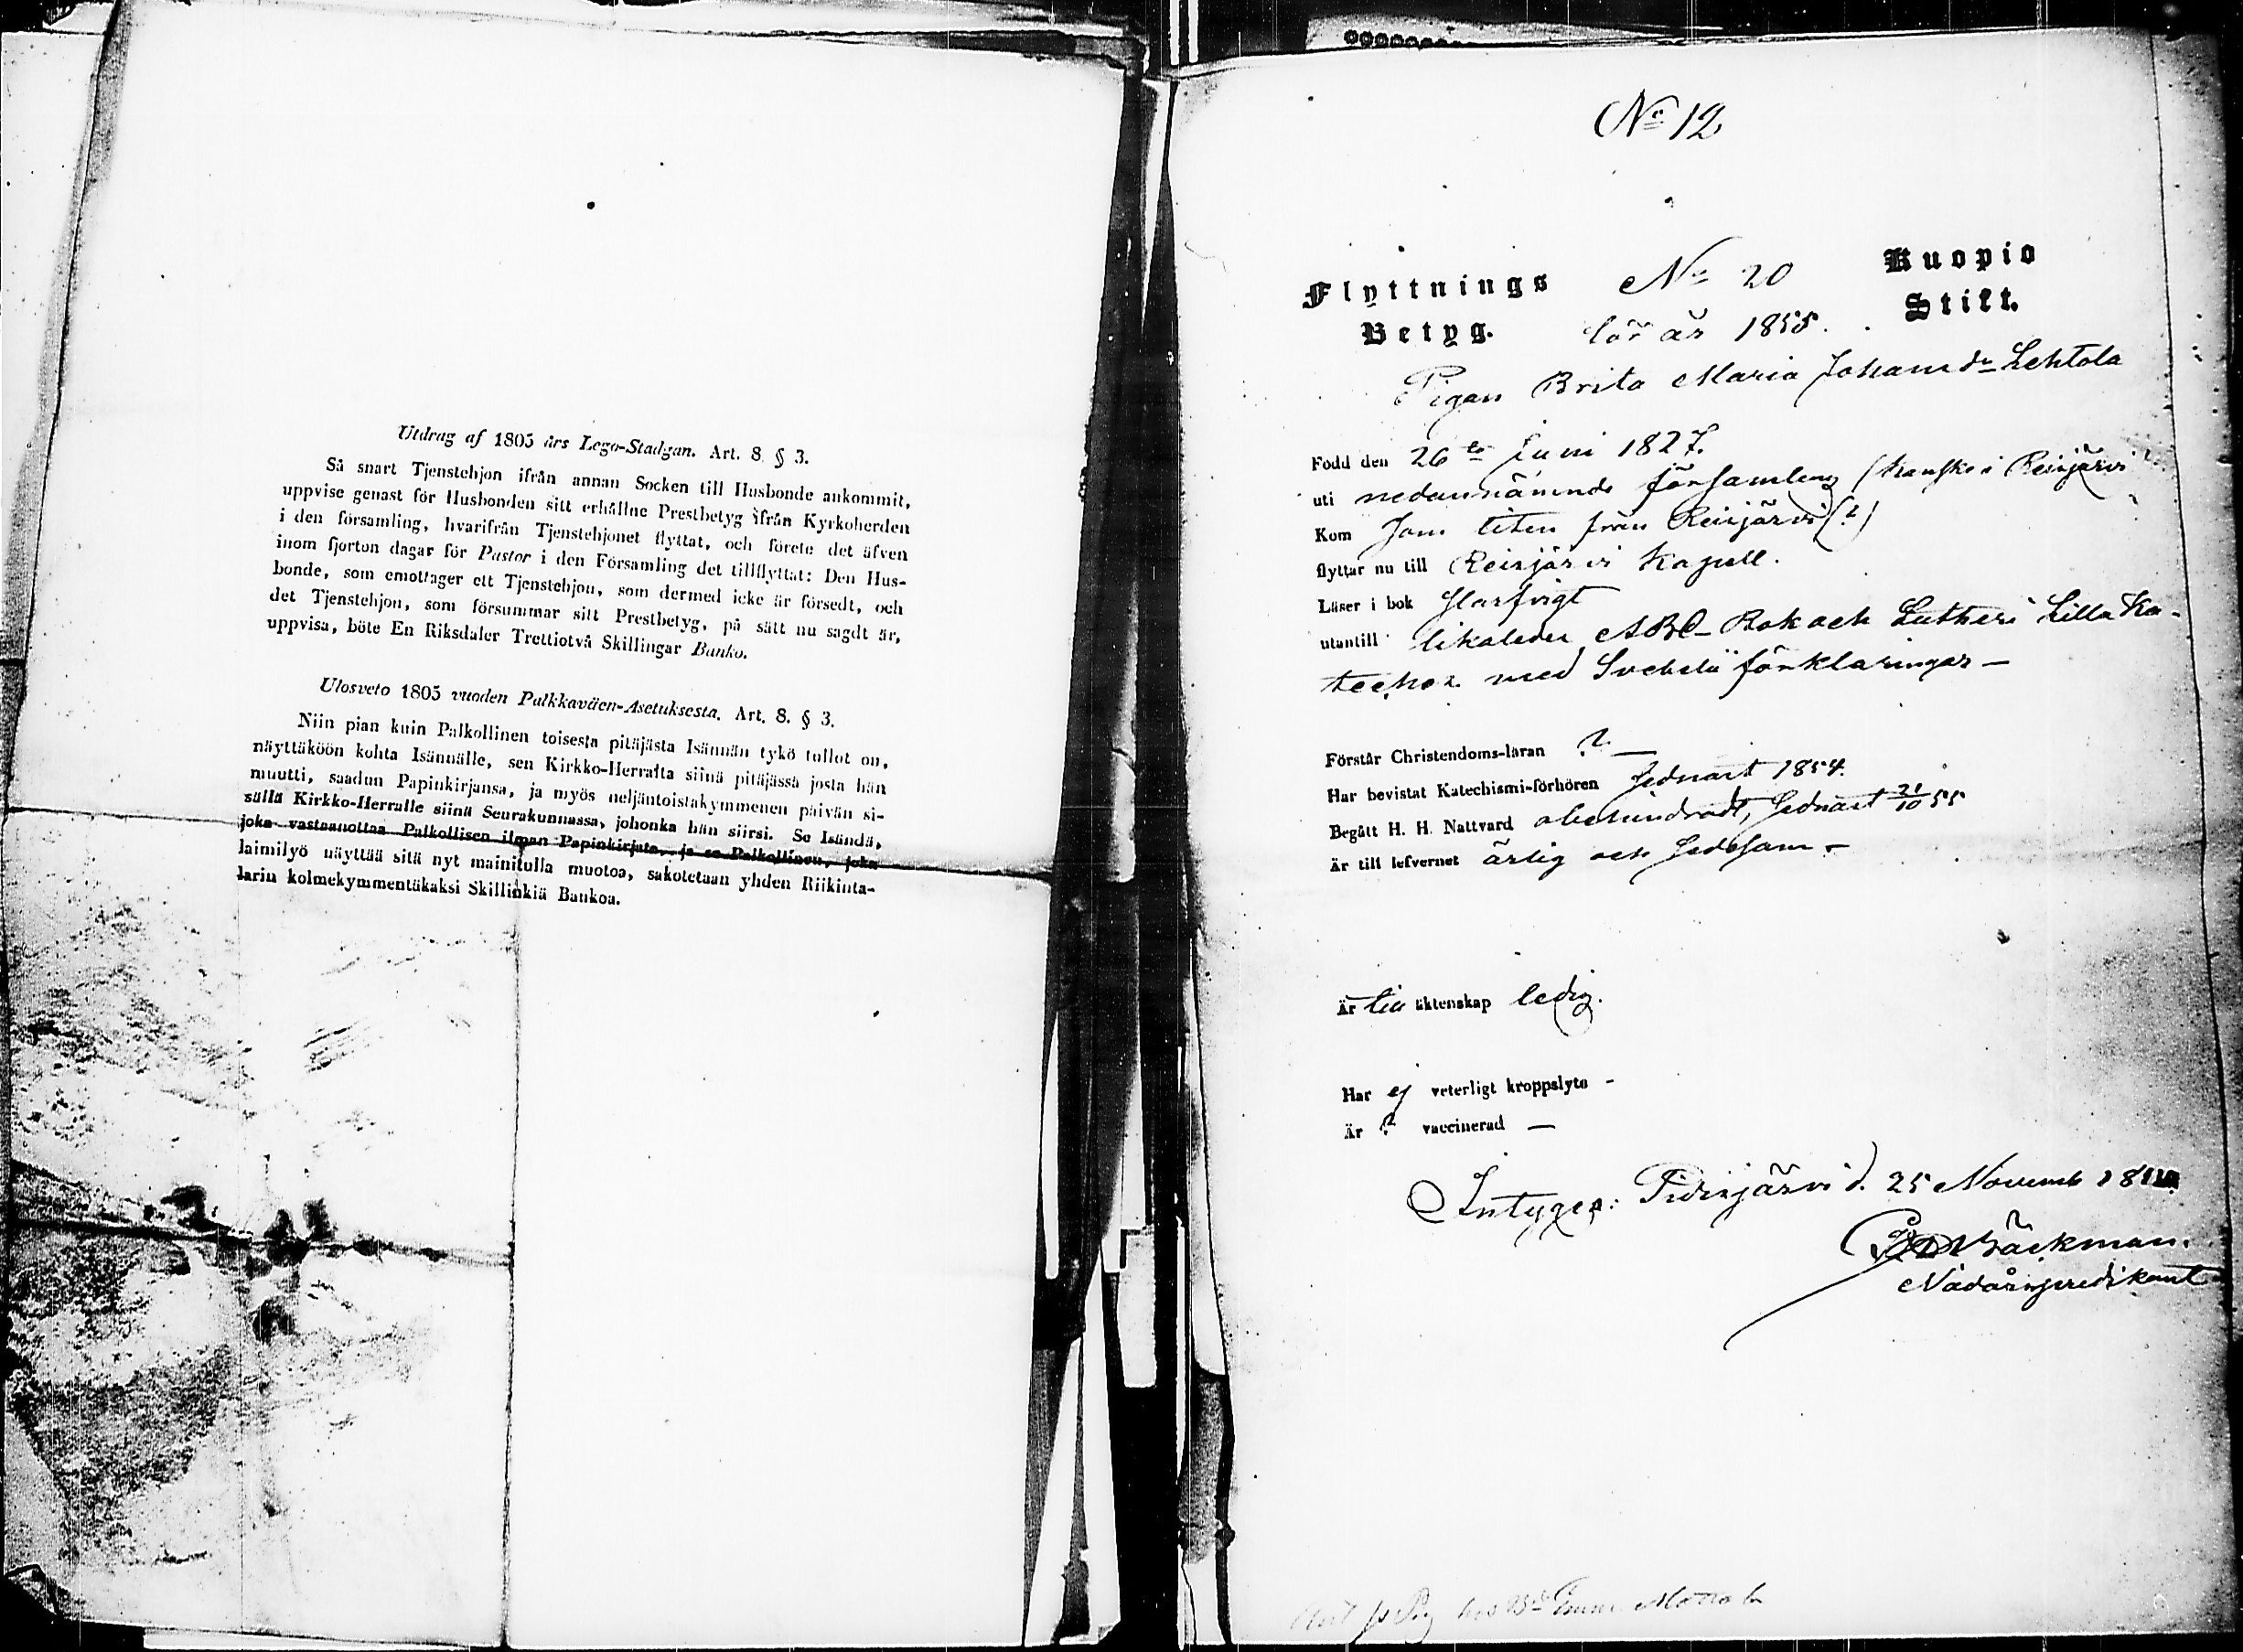 Utdrag af 1805 års Lego-Stadgan. Art. 8. § 3.
Så snart Tjenstehjon ifrån annan Socken till Husbonde ankommit,
uppvise genast för Husbonden sitt erhållne Prestbetyg ifrån Kyrkoherden
i den församling, hvarifrån Tjenstehjonet flyttat, och förete det äfven
inom fjorton dagar för Pastor i den Församling det tillflyttat: Den Hus-
bonde, som emottager ett Tjenstehjon, som dermed icke är försedt, och
det Tjenstehjon, som försummar sitt Prestbetyg, på sätt nu sagdt är,
uppvisa, böte En Riksdaler Trettiotvå Skillingar Banko.
Ulosveto 1805 vuoden Palkkaväen-Asetuksesta. Art. 8. § 3.
Niin pian kuin Palkollinen toisesta pitäjästä Isännän tykö tullot on,
näyttäköön kohta Isännälle, sen Kirkko-Herralta siinä pitäjässä josta hän
muutti, saadun Papinkirjansa, ja myös neljäntoistakymmenen päivän si-
sällä Kirkko-Herralle siinä Seurakunnassa, johonka hän siirsi. Se Isändä,
joka vastaanottaa Palkollisen ilman Papinkirjata, ja se Palkollinen, joka
laimilyö näyttää sitä nyt mainitulla muotoa, sakotetaan yhden Riikinta-
larin kolmekymmentäkaksi Skillinkiä Bankoa.
No 12
Flyttnings No 20 Kuopio
Betyg. för år 1855. Stift.
Pigan Brita Maria Johansdr Lehtola
Född den 26te Juni 1827.
uti nedannämnde församling (kanske i Reisjärvi
Kom som liten från Reisjärvi (?)
flyttar nu till Reisjärvi Kapell.
Läser i bok försvigt
utantill likaledes ABC-Bok och Lutheri Lilla Ka-
teches med Svebelii förklaringar —
Förstår Christendoms-läran ? —
Har bevistat Katechismi-förhören sednast 1854.
Begått H. H. Nattvard obehindradt, sednast 21/10 55
Är till lefvernet ärlig och sedesam —
Är till äktenskap ledig.
Har ej veterligt kroppslyte -
Är ? vaccinerad —
Intygar: Pidisjärvi d. 25 Novemb
Bäckman.
Nådårspredikant
hos